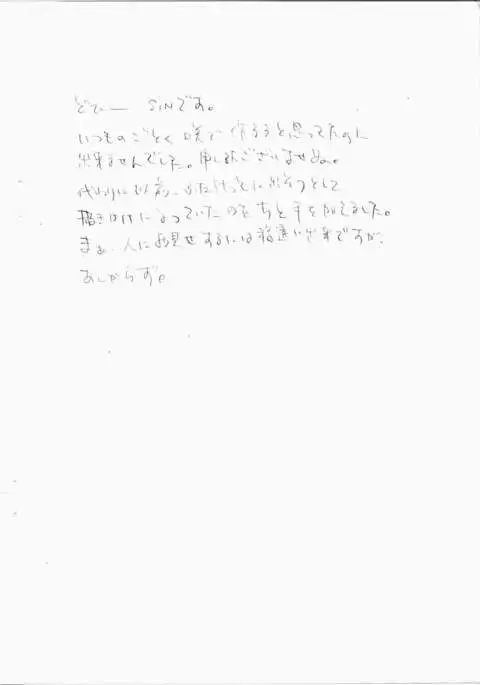 どーも SiNです。
いつものごとく 咲で作ろうと思ってたのに
出来ませんでした。申し訳ございませぬ。
代わりに以前、に出そうとして
描きかけになっていたのをちと手を加えました。
まぁ、人にお見せするには程遠い出来ですが、
あしからず。